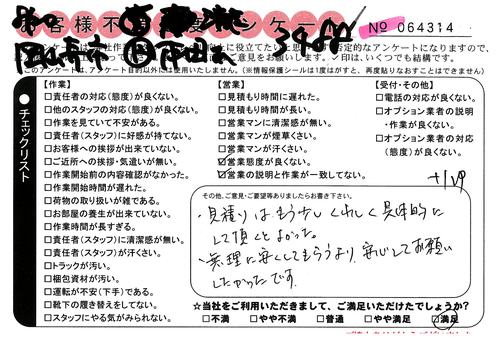 お客様不満足度アンケート
№ 064314
アンケートは
に役立てたい
否定的なアンケートになりますので、
意見をお願いします。✓印は、いくつでも結構です。
このアンケートは、アンケート目的以外には使用いたしません。(※情報保護シールは1度はがすと、再度貼りなおすことはできません)
チェックリスト
【作業】
□責任者の対応(態度)が良くない。
□他のスタッフの対応(態度)が良くない。
□作業を見ていて不安がある。
□責任者(スタッフ)に好感が持てない。
□お客様への挨拶が出来ていない。
□ご近所への挨拶・気遣いが無い。
□作業開始前の内容確認がなかった。
□作業開始時間が遅れた。
□荷物の取り扱いが雑である。
□お部屋の養生が出来ていない。
□作業時間が長すぎる。
□責任者(スタッフ)に清潔感が無い。
□責任者(スタッフ)が汗くさい。
□トラックが汚い。
□梱包資材が汚い。
□運転が不安(下手)である。
□靴下の履き替えをしてない。
□スタッフにやる気がみられない。
【営業】
□見積もり時間に遅れた。
□見積もり時間が長い。
□営業マンに清潔感が無い。
□営業マンが煙草くさい。
□営業マンが汗くさい。
☑営業態度が良くない。
☑営業の説明と作業が一致してない。
【受付・その他】
□電話の対応が良くない。
□オプション業者の説明
・作業が良くない。
□オプション業者の対応
(態度)が良くない。
その他、ご意見・ご要望等ありましたらお書き下さい。
・見積りはもう少しくわしく具体的に
して頂くとよかった。
・無理に安くしてもらうより、安心してお願い
したかったです。
☆当社をご利用いただきまして、ご満足いただけたでしょうか?
□不満 □やや不満 □普通 □やや満足 □満足